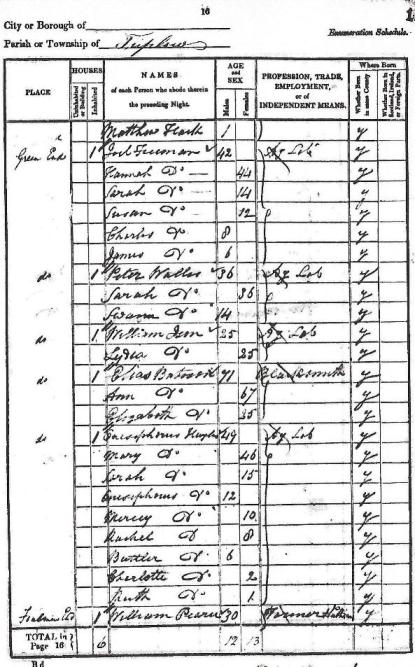 16
City or Borough of
Parish or Township of Triplow
Enumeration Schedule.
PLACE
HOUSES
Uninhabited or Building
Inhabited
NAMES
of each Person who abode therein the preceding Night.
AGE and SEX
Males
Females
PROFESSION, TRADE, EMPLOYMENT, or of INDEPENDENT MEANS.
Where Born
Whether Born in same County
Whether Born in Scotland, Ireland, or Foreign Parts.
Matthew 1 y
Green End 1 Joel Freeman 42 Ag Lab y
Hannah Do 44 y
Sarah Do 14 y
Susan Do 12 y
Charles Do 8 y
James Do 6 y
do 1 Peter Wallis 36 Ag Lab y
Sarah Do 36 y
Do 14 y
do 1 William 25 Ag Lab y
Lydia Do 25 y
do 1 Elias 71 Blacksmith y
Ann Do 67 y
Elizabeth Do 35 y
do 1 Onesiphorus 49 Ag Lab y
Mary Do 46 y
Sarah Do 15 y
Onesiphorus Do 12 y
Mercy Do 10 y
Rachel D 8 y
Do 6 y
Charlotte Do 2 y
Ruth Do 1 y
1 William 30 Farmer y
TOTAL in Page 16 6 12 13